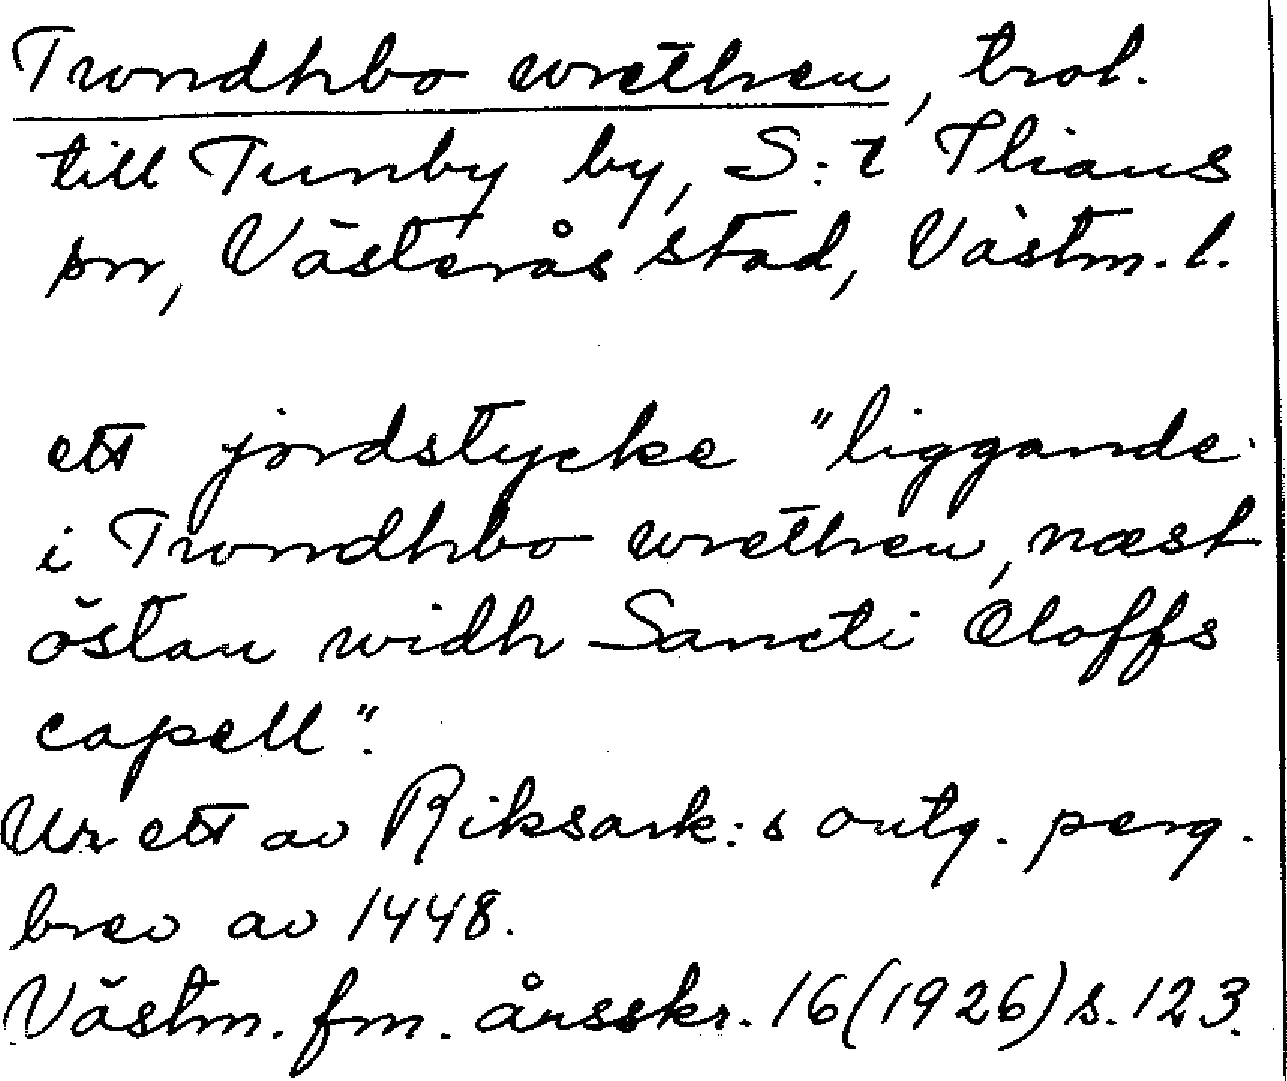 Trondhbo wrethen, trol.
till Tunby by, S:t Ilians
pn, Västerås stad, Västm. l.
ett jordstycke "liggande
i Trondhbo wrethen, næst
östan widh Sancti Oloffs
capell".
Ur ett av Riksark:s outg. perg.
brev av 1448.
Västm. fm. årsskr. 16 (1926) s. 123.